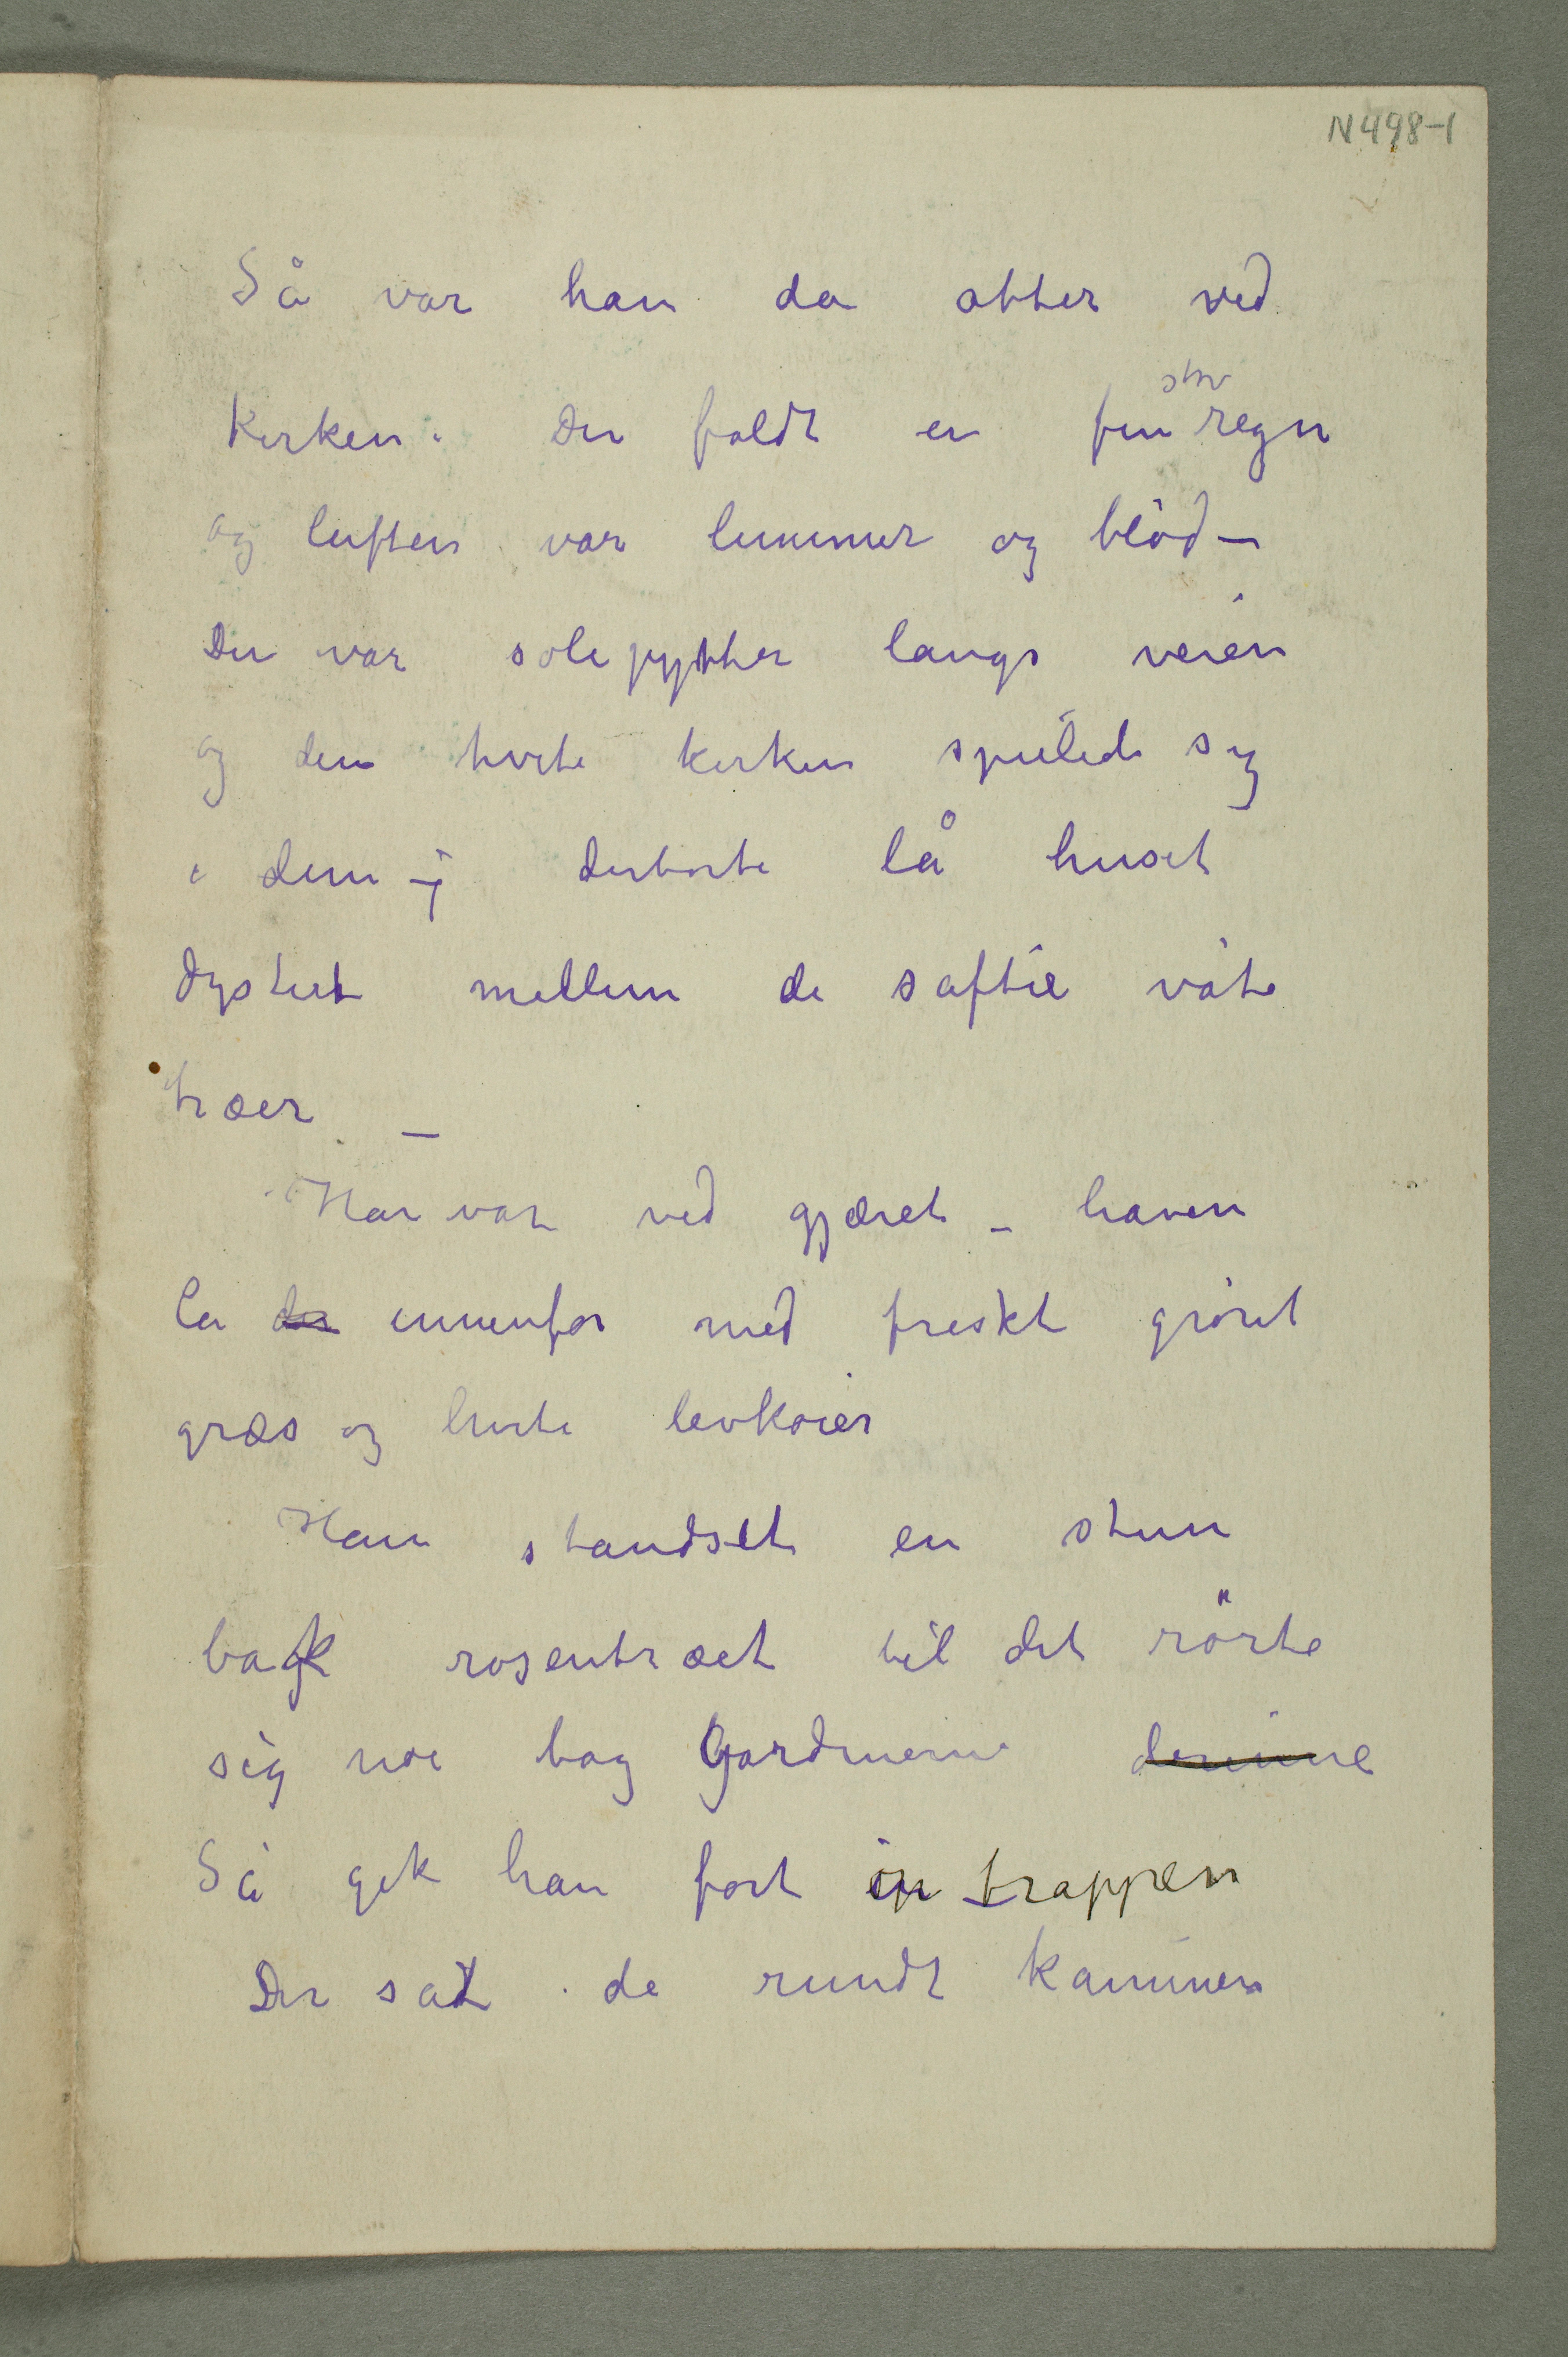 N498-1
Så var han da atter ved
støv
kirken. Der faldt en fin regn
og luften var lummer og blød –
Der var sølepytter langs veien
og den hvite kirken speilede sig
i dem – derborte lå huset
dystert mellem de saftie våte
træer –
Han var ved gjæret – haven
la der innenfor med friskt grønt
græs og hvite levkøier
Han standset en stun
bak rosentræet til det rørte
sig noe bag Gardinerne derinne
Så gik han fort op trappen
Der sat de rundt kaminen